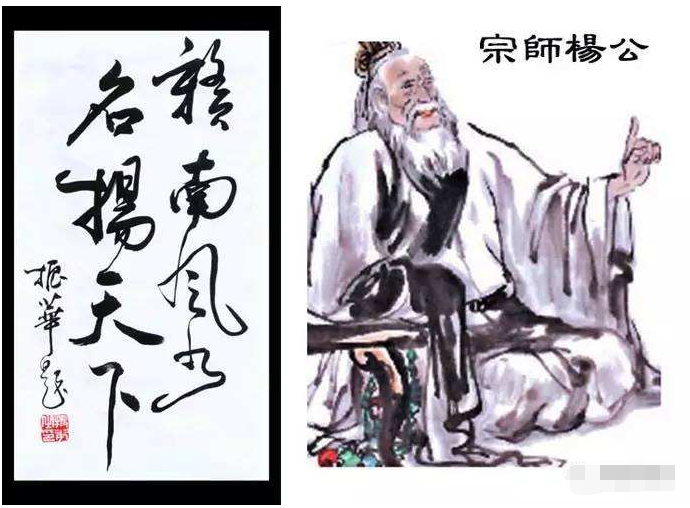 贛南風水
名揚天下
振華題
宗師楊公